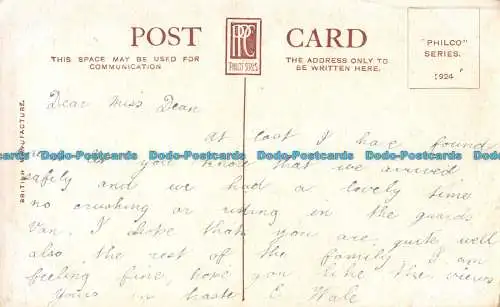 POST CARD
THIS SPACE MAY BE USED FOR
COMMUNICATION
THE ADDRESS ONLY TO
BE WRITTEN HERE.
PHILCO SERIES
"PHILCO"
SERIES.
1924
BRITISH MANUFACTURE.
Dear Miss Dean
at last I have found
to let you know that we arrived
safely and we had a lovely time
no crushing or riding in the guards
van. I hope that you are quite well
also the rest of the family I am
feeling fine, hope you like the views
Yours in haste E Wale
Dodo-Postcards Dodo-Postcards Dodo-Postcards Dodo-Postcards
Dodo-Postcards Dodo-Postcards Dodo-Postcards Dodo-Postcards